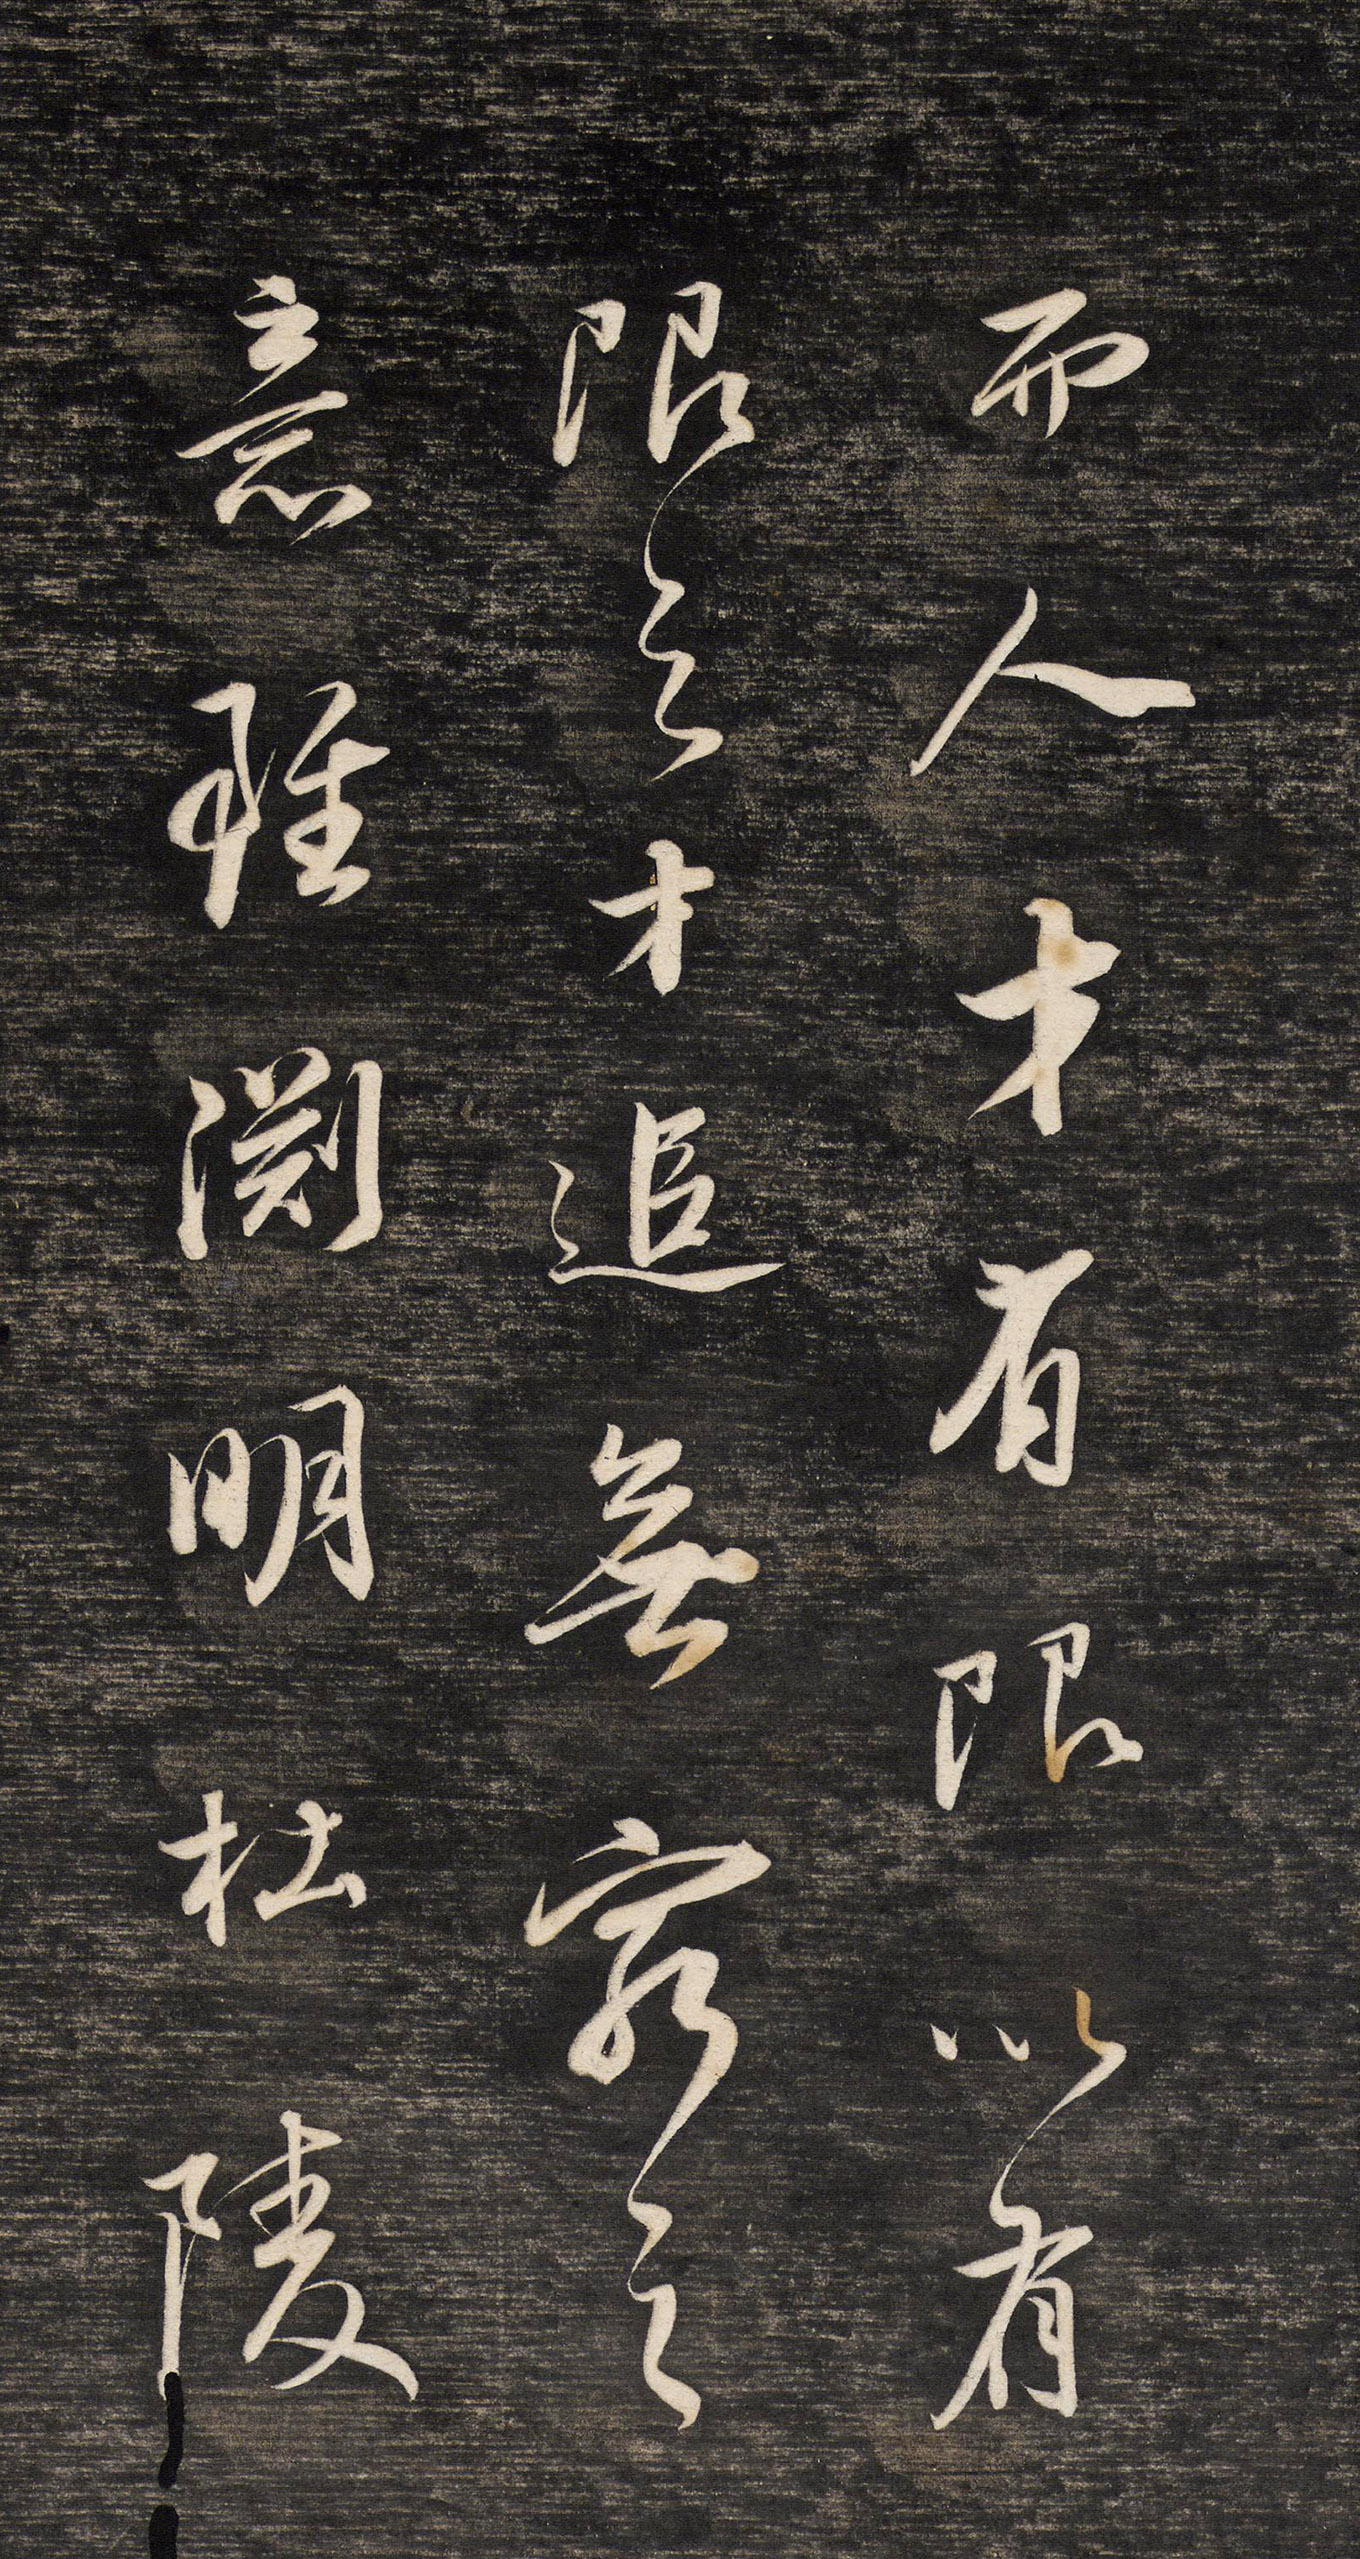 而人才有限以有
限之才追無窮之
意雖淵明杜陵